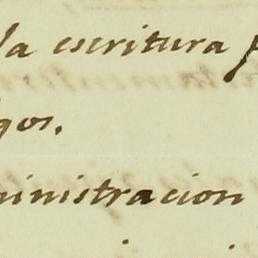 la escritura
gos.
ministracion